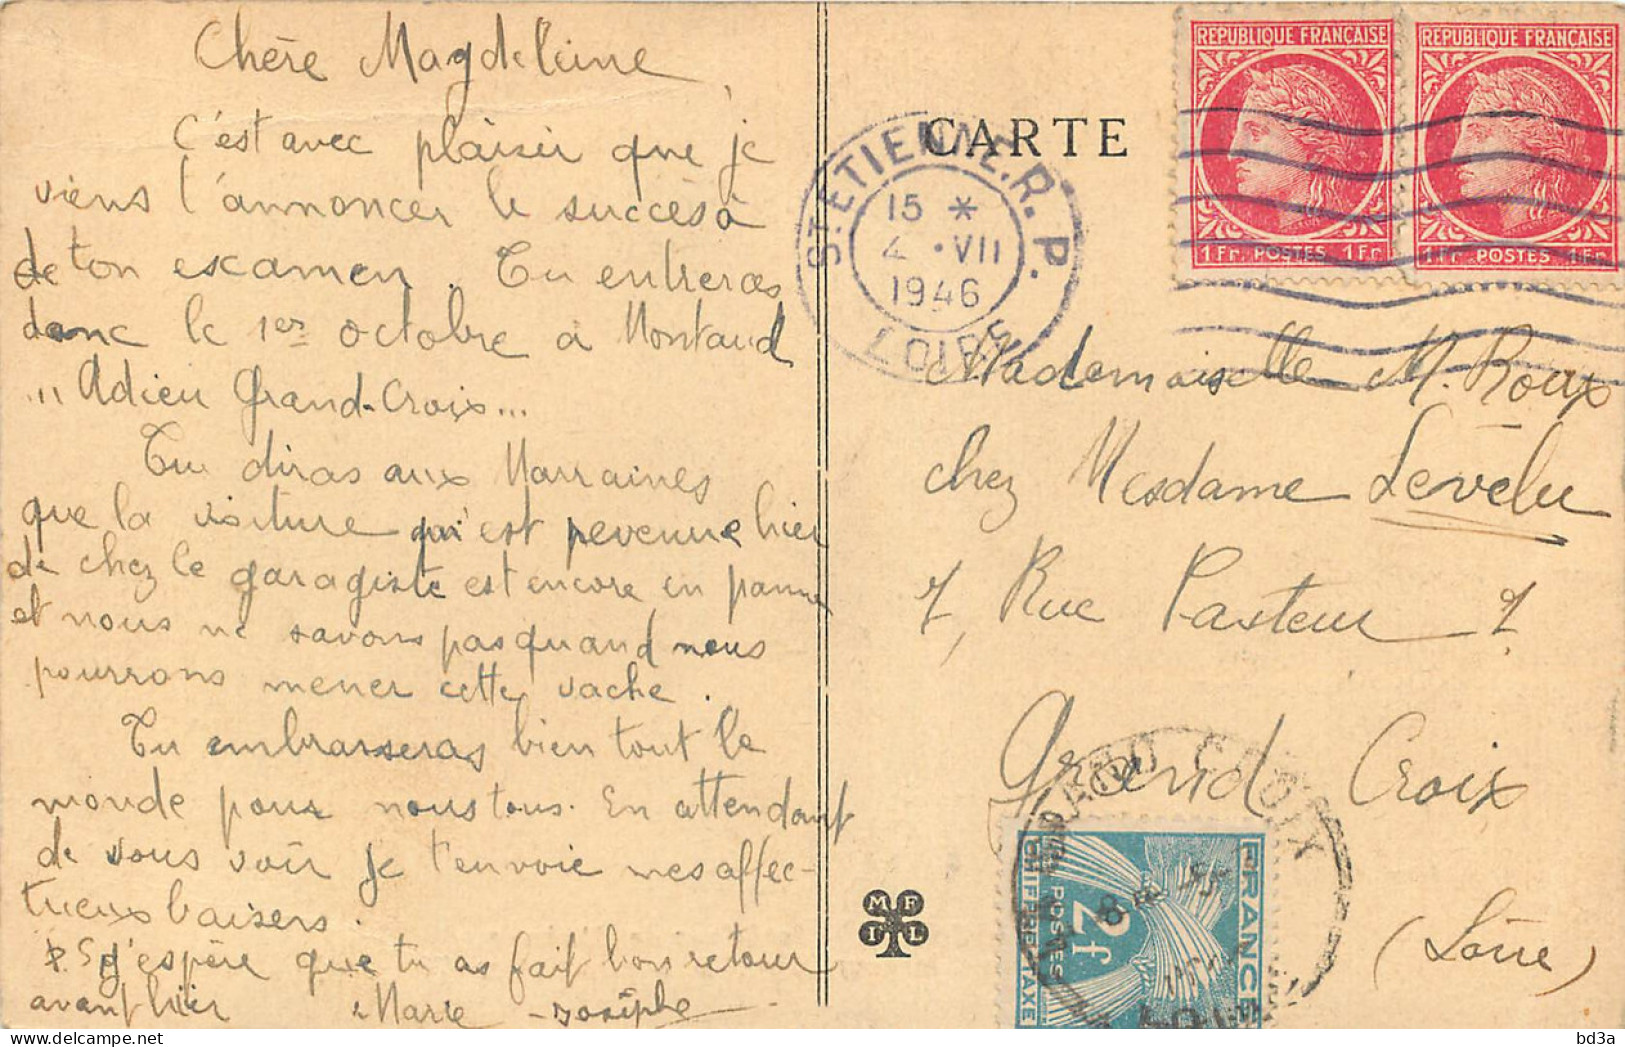 Chère Magdeleine
C'est avec plaisir que je
viens t'annoncer le succès à
de ton examen. Tu entreras
donc le 1er octobre à Montaud
"Adieu Grand-Croix...
Tu diras aux Marraines
que la voiture qui est revenue hier
de chez le garagiste est encore en panne
et nous ne savons pas quand nous
pourrons mener cette vache.
Tu embrasseras bien tout le
monde pour nous tous. En attendant
de vous voir je t'envoie mes affec-
tueux baisers.
P.S j'espère que tu as fait bon retour
avant hier Marie-Josèphe
CARTE
ST. ETIENNE. R. P.
15 *
4 · VII
1946
LOIRE
REPUBLIQUE FRANÇAISE
1Fr. POSTES 1Fr.
REPUBLIQUE FRANÇAISE
1Fr. POSTES 1Fr.
Mademoiselle M. Roux
chez Mesdame Levèlu
7, Rue Pasteur 7
Grand Croix
(Loire)
GRAND CROIX
FRANCE
2f
POSTES
CHIFFRE-TAXE
M F
I L
bd3a